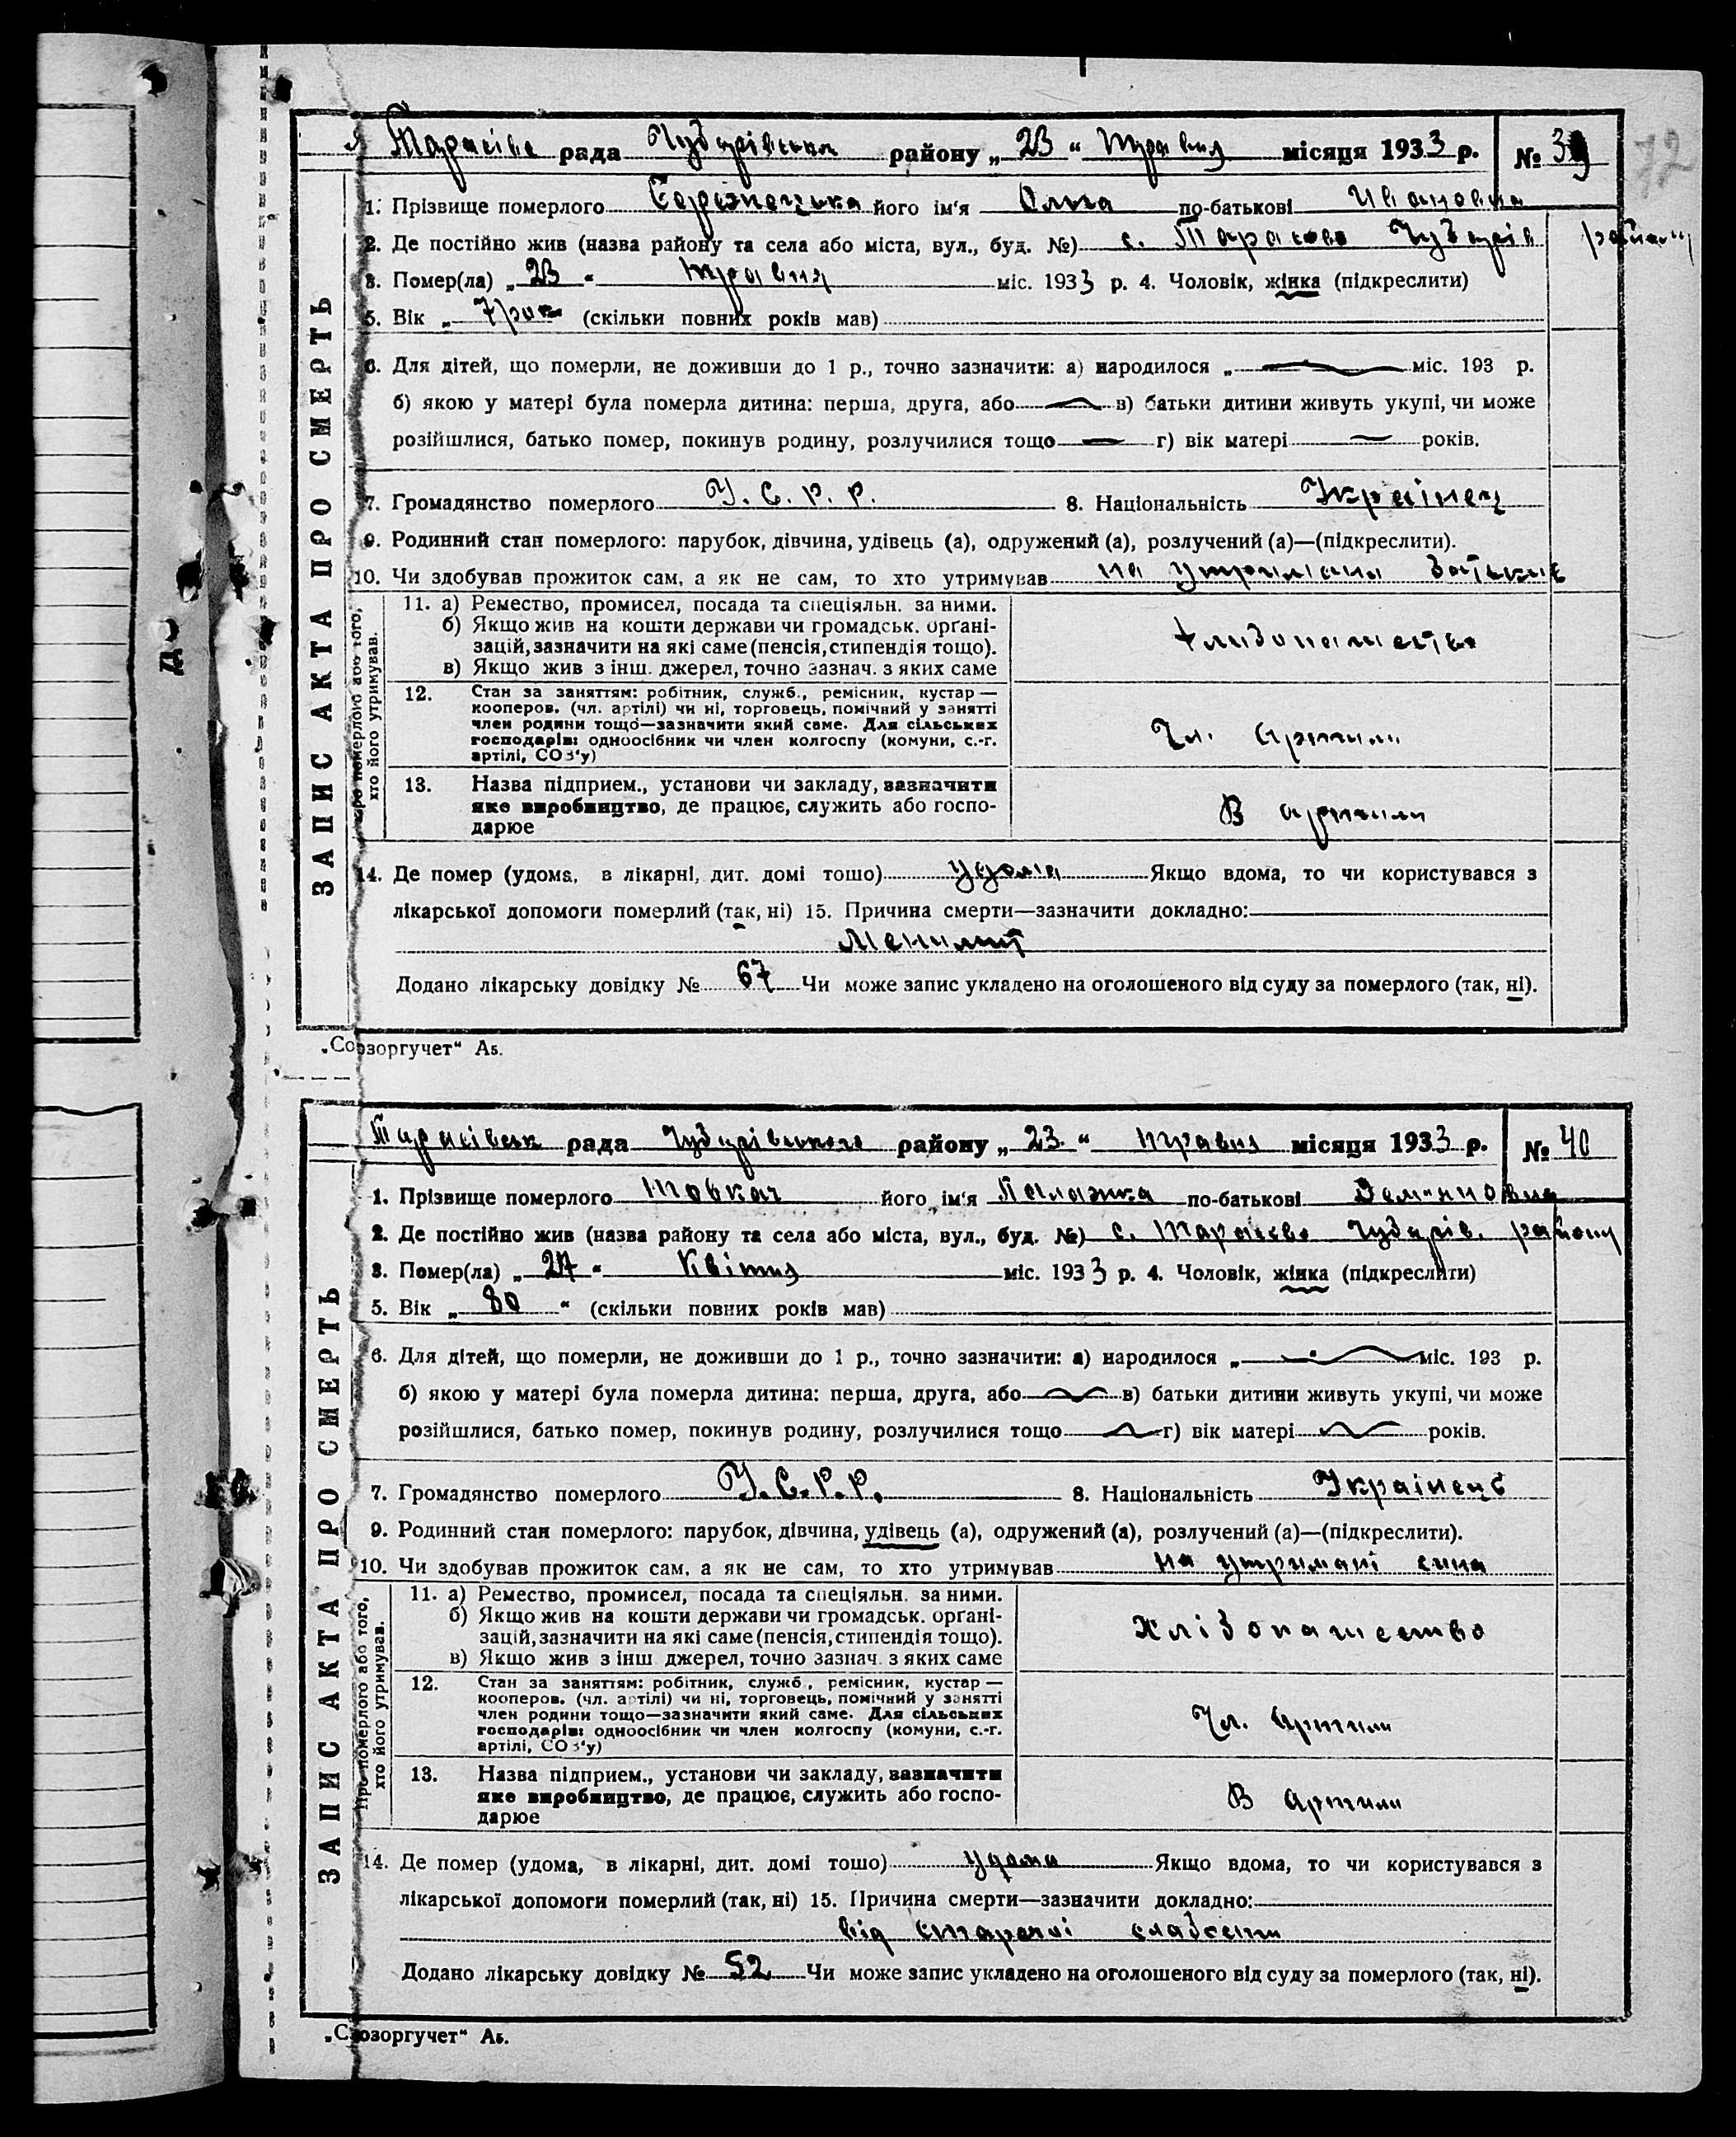 72
Тарасівс рада Чубарівська району „ 23 “ Травня місяця 1933 р. № 39
1. Прізвище померлого його ім‘я Ольга по-батькові Ивановна
2. Де постійно жив (назва району та села або міста, вул., буд. №) с. Тарасово Чубарів району
3. Помер(ла) „ 23 “ Травня міс. 1933 р. 4. Чоловік, жінка (підкреслити)
5. Вік „ 7 рок (скільки повних років мав)
6. Для дітей, що померли, не доживши до 1 р., точно зазначити: а) народилося „ міс. 193 р.
б) якою у матері була померла дитина: перша, друга, або в) батьки дитини живуть укупі, чи може
розійшлися, батько помер, покинув родину, розлучилися тощо г) вік матері років.
7. Громадянство померлого У. С. Р. Р. 8. Національність Україиец
9. Родинний стан померлого: парубок, дівчина, удівець (а), одружений (а), розлучений (а)—(підкреслити).
10. Чи здобував прожиток сам, а як не сам, то хто утримував на утримани
11. а) Ремество, промисел, посада та спеціяльн. за ними.
б) Якщо жив на кошти держави чи громадськ. орґані-
зацій, зазначити на які саме (пенсія, стипендія тощо).
в) Якщо жив з інш. джерел, точно зазнач. з яких саме
хлибопашество
12. Стан за заняттям: робітник, служб., ремісник, кустар —
кооперов. (чл. артілі) чи ні, торговець, помічний у занятті
член родини тощо—зазначити який саме. Для сільських
господарів: одноосібник чи член колгоспу (комуни, с.-г.
артілі, СОЗ‘у)
Чл. артили
13. Назва підприєм., установи чи закладу, зазначити
яке виробництво, де працює, служить або госпо-
дарює
В артили
14. Де помер (удома, в лікарні, дит. домі тощо) удома Якщо вдома, то чи користувався з
лікарської допомоги померлий (так, ні) 15. Причина смерти—зазначити докладно:
Менинит
Додано лікарську довідку № 67 Чи може запис укладено на оголошеного від суду за померлого (так, ні).
ЗАПИС АКТА ПРО СМЕРТЬ
Про померлого або того,
хто його утримував.
„Союзоргучет“ А5.
Тарасівськ рада Чубарівського району „ 23 “ травня місяця 1933 р. № 40
1. Прізвище померлого Товкач його ім‘я Палажка по-батькові Демяновна
2. Де постійно жив (назва району та села або міста, вул., буд. №) с. Тарасово Чубарів. району
3. Помер(ла) „ 27 “ Квітня міс. 1933 р. 4. Чоловік, жінка (підкреслити)
5. Вік „ 80 “ (скільки повних років мав)
6. Для дітей, що померли, не доживши до 1 р., точно зазначити: а) народилося „ міс. 193 р.
б) якою у матері була померла дитина: перша, друга, або в) батьки дитини живуть укупі, чи може
розійшлися, батько помер, покинув родину, розлучилися тощо г) вік матері років.
7. Громадянство померлого У. С. Р. Р. 8. Національність Українець
9. Родинний стан померлого: парубок, дівчина, удівець (а), одружений (а), розлучений (а)—(підкреслити).
10. Чи здобував прожиток сам, а як не сам, то хто утримував на утримані сина
11. а) Ремество, промисел, посада та спеціяльн. за ними.
б) Якщо жив на кошти держави чи громадськ. орґані-
зацій, зазначити на які саме (пенсія, стипендія тощо).
в) Якщо жив з інш джерел, точно зазнач. з яких саме
хлібопашество
12. Стан за заняттям: робітник, служб., ремісник, кустар —
кооперов. (чл. артілі) чи ні, торговець, помічний у занятті
член родини тощо—зазначити який саме. Для сільських
господарів: одноосібник чи член колгоспу (комуни, с.-г.
артілі, СОЗ‘у)
Чл. артили
13. Назва підприєм., установи чи закладу, зазначити
яке виробництво, де працює, служить або госпо-
дарює
В артили
14. Де помер (удома, в лікарні, дит. домі тощо) удома Якщо вдома, то чи користувався з
лікарської допомоги померлий (так, ні) 15. Причина смерти—зазначити докладно:
від старечої слабости
Додано лікарську довідку № 52 Чи може запис укладено на оголошеного від суду за померлого (так, ні).
ЗАПИС АКТА ПРО СМЕРТЬ
Про померлого або того,
хто його утримував.
„Союзоргучет“ А5.